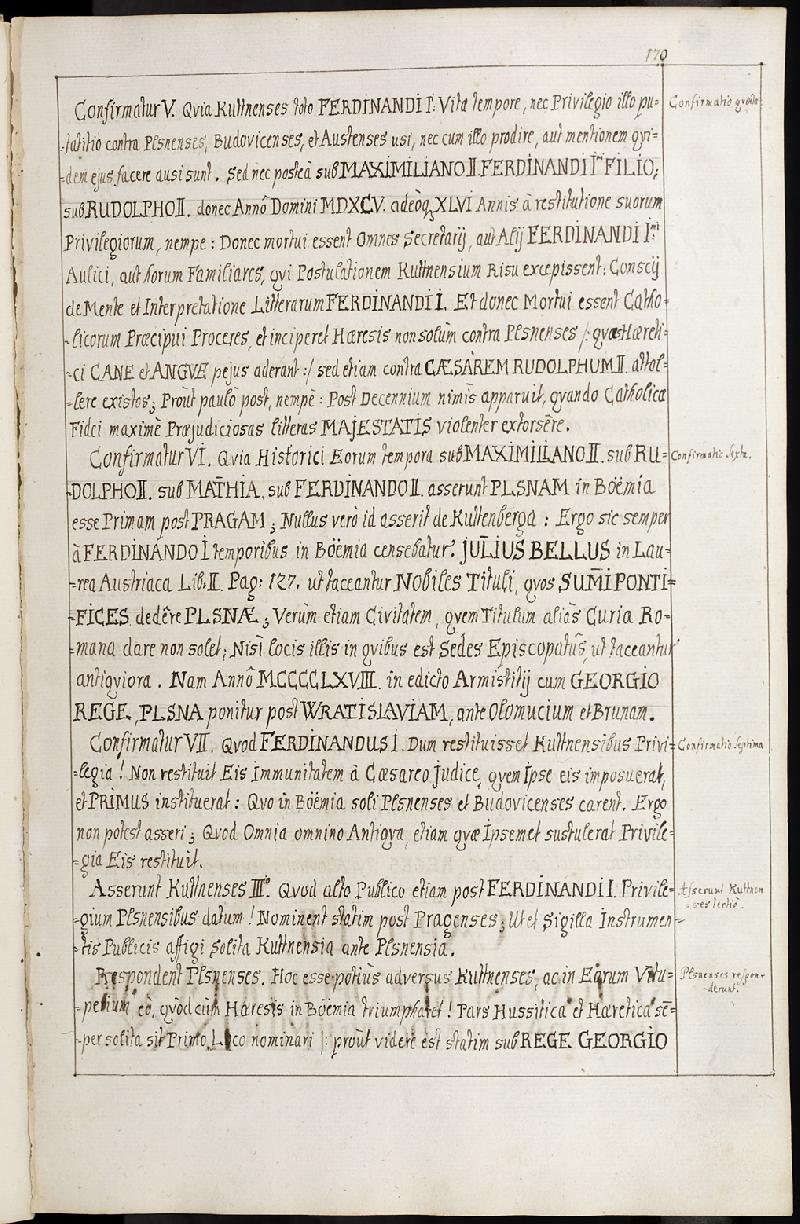 170
Confirmatur V. Qvia Kuttnenses toto FERDINANDI I. Vita tempore, nec Privilegio illo pu=
Confirmatio qvinta
-tatitio contra Plsnenses, Budovicenses, et Austenses usi, nec cum illo prodire, aut mentionem qvi-
-dem ejus facere ausi sunt. Sed nec posteà sub MAXIMILIANO II. FERDINANDI I.mi FILIO,
sub RUDOLPHO II. donec Annô Domini MDXCV. adeòq3 XLVI Annis à restitutione suorum
Privilegiorum, nempe: Donec mortui essent Omnes Secretarij, aut Alij FERDINANDI I.mi
Aulici, aut horum Familiares, qvi Postulationem Kuttnensium Risu excepissent: Conscij
de Mente et Interpretatione Litterarum FERDINANDI I. Et donec Mortui essent Catho-
-licorum Præcipui Proceres, et inciperet Hæresis non solùm contra Plsnenses /: qvos Hæreti-
-ci CANE et ANGVE pejus oderant :/ sed etiam contra CÆSAREM RUDOLPHUM II. attol-
-lere cristas; Proùt paulò post, nempè: Post Decennium nimis apparuit, qvando Catholicæ
Fidei maximè Præjudiciosas litteras MAJESTATIS violenter extorsêre.
Confirmatur VI. Qvia Historici Eorum tempora sub MAXIMILIANO II. sub RU=
Confirmatio Sexta.
-DOLPHO II. sub MATHIA, sub FERDINANDO II. asserunt PLSNAM in Böëmia
esse Primam post PRAGAM; Nullus verò id asserit de Kuttenberga: Ergo sic semper
à FERDINANDO I. temporibus in Böëmia censebatur. JULIUS BELLUS in Lau-
-rea Austriaca Lib. II. Pag: 127. ut taceantur NOBILES Tituli, qvos SUM̄I PONTI=
-FICES dedêre PLSNÆ; Verùm etiam Civitatem, qvem Titulum aliàs Curia Ro-
mana dare non solet; Nisi locis illis in qvibus est Sedes Episcopatûs, ut taceantur
antiqviora. Nam Annô MCCCCLXVIII. in edicto Armistitij cum GEORGIO
REGE, PLSNA ponitur post WRATISLAVIAM, ante Olomucium et Brunam.
Confirmatur VII. Qvod FERDINANDUS I. Dum restituisset Kuttnensibus Privi-
Confirmatio Septima
-legia! Non restituit Eis Immunitatem à Cæsareo Judice, qvem Ipse eis imposuerat,
et PRIMUS instituerat: Qvo in Böëmia soli Plsnenses et Budovicenses carent. Ergo
non potest asseri; Qvod Omnia omnino Antiqva, etiam qvæ Ipsemet sustulerat Privile-
-gia Eis restituit.
Asserunt Kuttnenses III.o Qvod alto Publico etiam post FERDINANDI I. Privile=
Asserunt Kuttnen
-ses tertiò.
-gium Plsnensibus datum! Nominent statim post Pragenses; Ut et Sigilla Instrumen-
-tis Publicis affigi solita Kuttnensia ante Plsnensia.
Respondent Plsnenses. Hoc esse potiùs adversus Kuttnenses, ac in Eorum Vitu-
Plsnenses respon-
-derunt.
-perium eò, qvòd cùm Hæresis in Böëmia triumpharet! Pars Hussitica et Hæretica sē-
-per solita sit Primo Loco nominari /: proùt videre est statim sub REGE GEORGIO